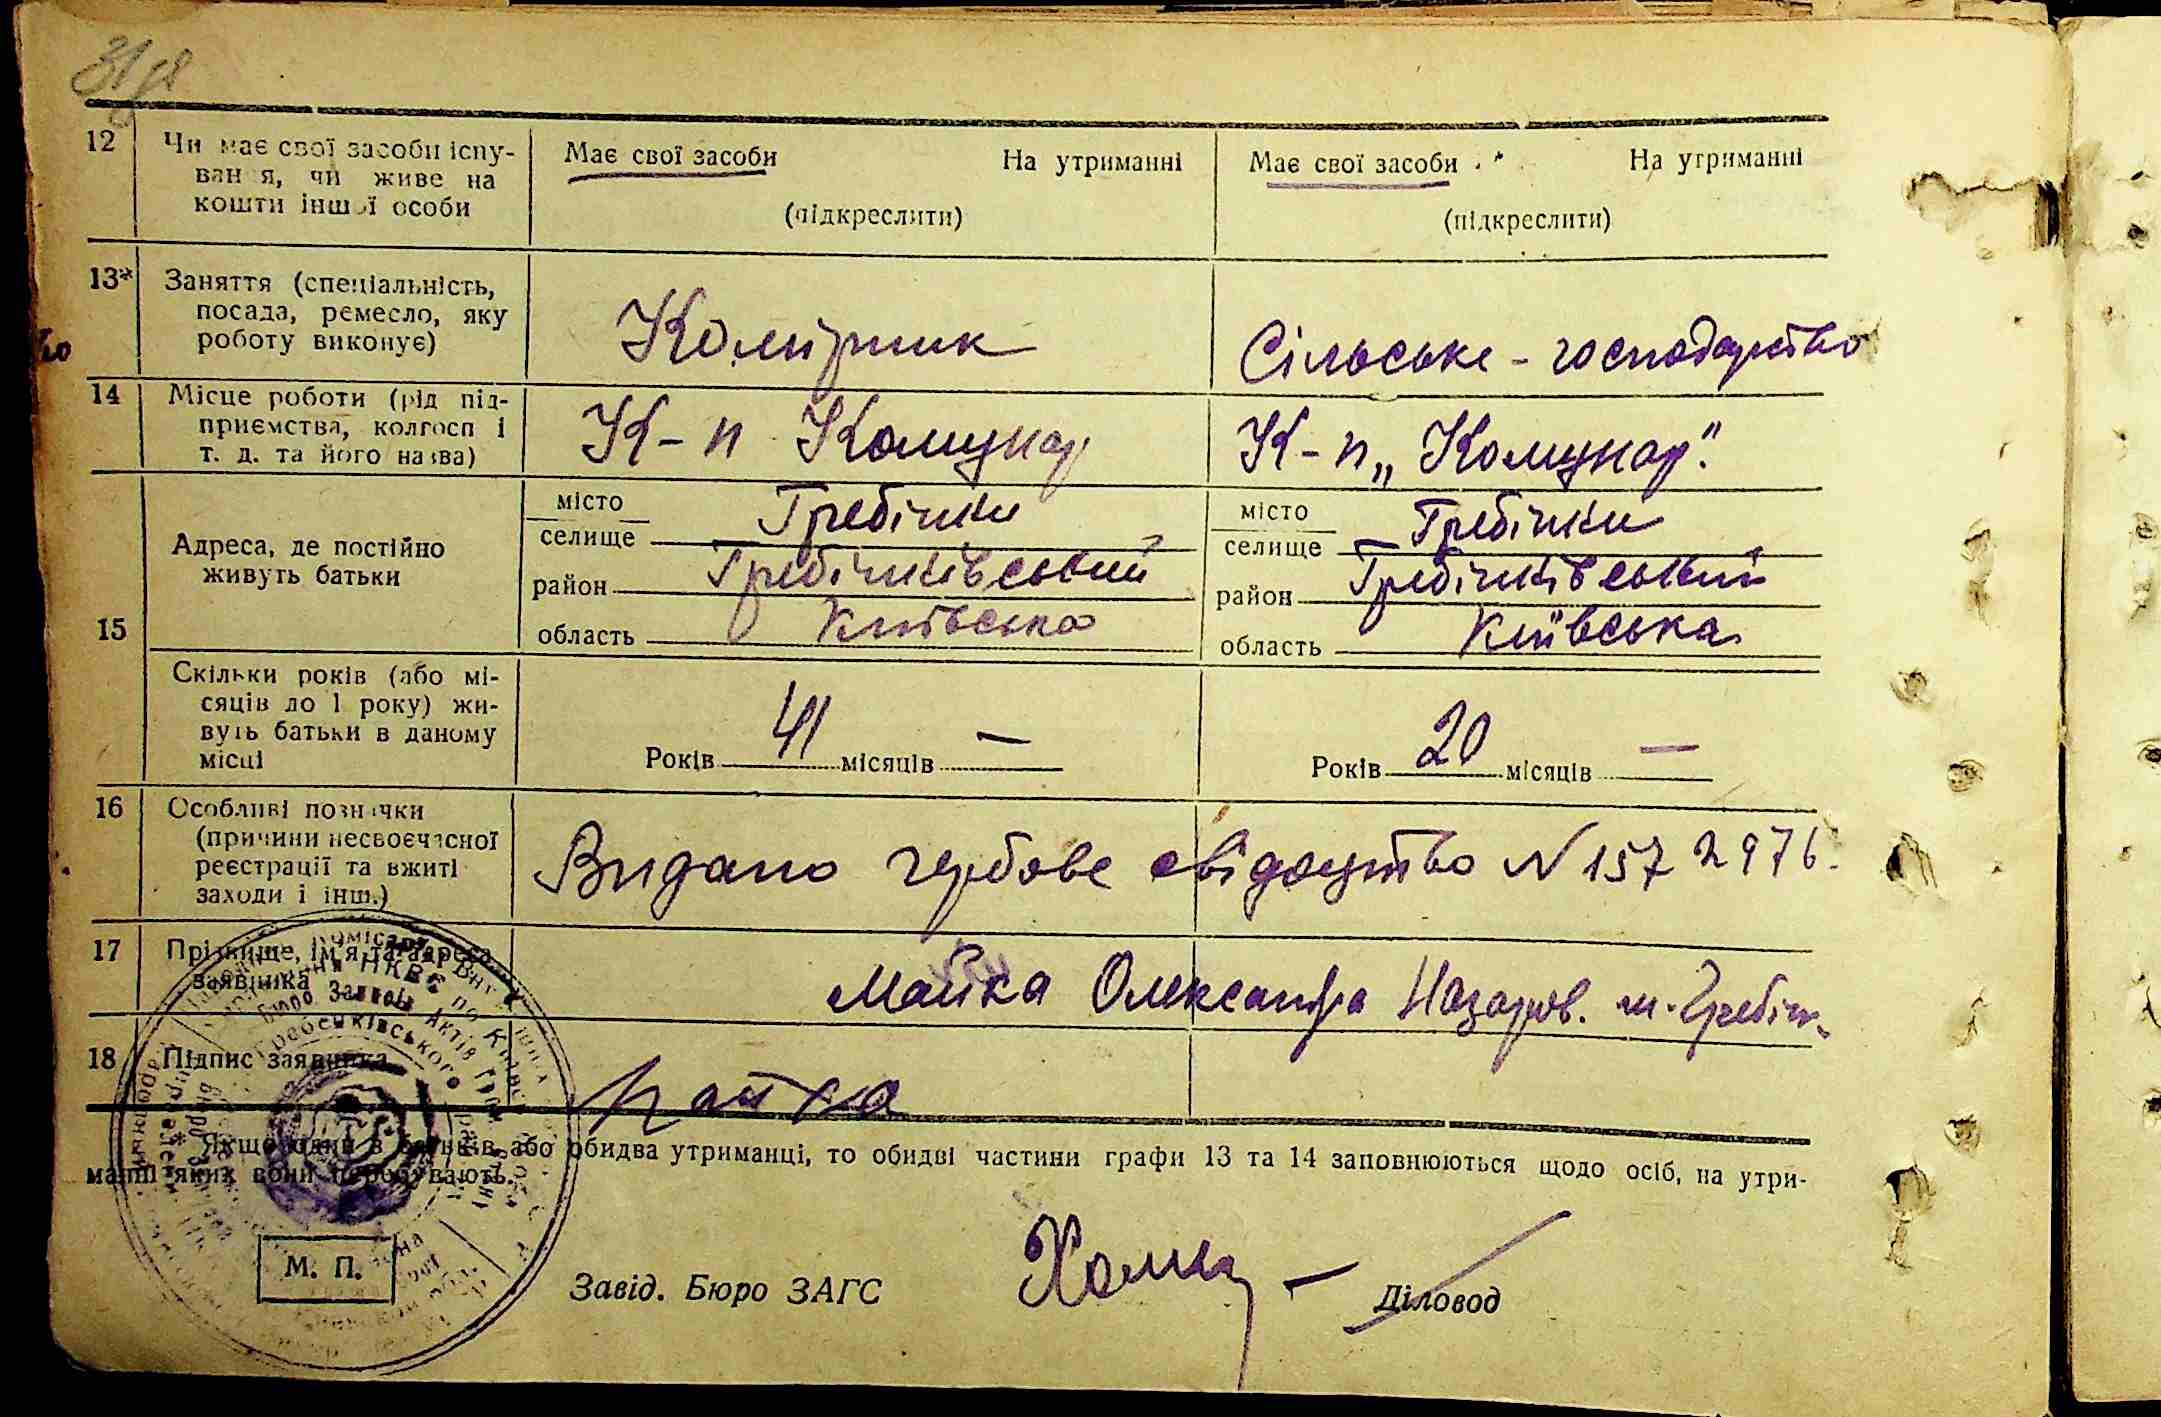 31
12 Чи має свої засоби існу- Має свої засоби На утриманні Має свої засоби На утриманні
вання, чи живе на
кошти іншої особи (підкреслити) (підкреслити)
13* Заняття (спеціальність,
посада, ремесло, яку Комірник Сільське - господарство
роботу виконує)
14 Місце роботи (рід під-
приємства, колгосп і К-п Комунар К-п „Комунар".
т. д. та його назва)
15 Адреса, де постійно
живуть батьки
місто
селище Гребінки
район Гребінківський
область Київська
місто
селище Гребінки
район Гребінківський
область Київська
Скільки років (або мі-
сяців до 1 року) жи-
вуть батьки в даному
місці
Років 41 місяців —
Років 20 місяців —
16 Особливі позначки
(причини несвоєчасної
реєстрації та вжиті
заходи і інш.)
Видано гербове свідоцтво N 157 2976.
17 Прізвище, ім'я та адреса
заявника
Майка Олександра Назаров. м. Гребін.
18 Підпис заявника Майка
* Якщо один з батьків або обидва утриманці, то обидві частини графи 13 та 14 заповнюються щодо осіб, на утри-
манні яких вони перебувають.
М. П.
Завід. Бюро ЗАГС Діловод